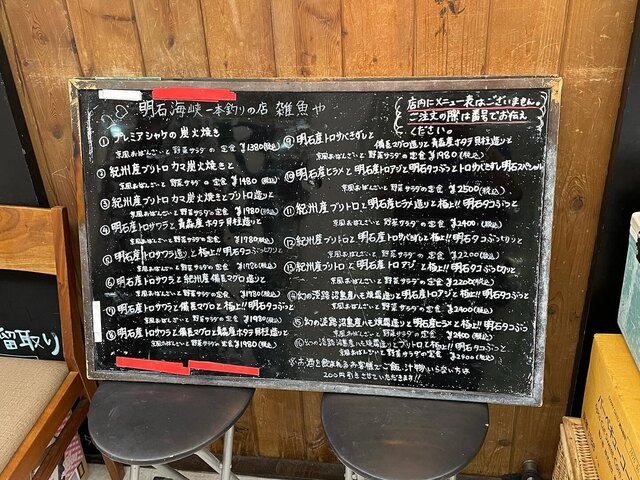 明石海峡 一本釣りの店 雑魚や
店内にメニュー表はございません。
ご注文の際は番号でお伝え
ください。
① プレミアシャケの炭火焼き
京風おばんざいと野菜サラダの定食 ¥1380(税込)
② 紀州産ブリトロカマ炭火焼きと
京風おばんざいと野菜サラダの定食 ¥1480(税込)
③ 紀州産ブリトロカマ炭火焼きとブリトロ造りと
京風おばんざいと野菜サラダの定食 ¥1980(税込)
④ 明石産トロサワラと青森産ホタテ貝柱造りと
京風おばんざいと野菜サラダの定食 ¥1780(税込)
⑤ 明石産トロサワラ造りと極上!!明石タコぶつと
京風おばんざいと野菜サラダの定食 ¥1780(税込)
⑥ 明石産トロサワラと紀州産備長マグロ造りと
京風おばんざいと野菜サラダの定食 ¥1780(税込)
⑦ 明石産トロサワラと備長マグロと極上!!明石タコぶつと
京風おばんざいと野菜サラダの定食 ¥1980(税込)
⑧ 明石産トロサワラと備長マグロと青森産ホタテ貝柱造りと
京風おばんざいと野菜サラダの定食 ¥1980(税込)
⑨ 明石産トロサバきずしと
備長マグロ造りと青森産ホタテ貝柱造りと
京風おばんざいと野菜サラダの定食 ¥1980(税込)
⑩ 明石産ヒラメと明石産トロアジと明石タコぶつとトロサバきずし明石スペシャル
京風おばんざいと野菜サラダの定食 ¥2500(税込)
⑪ 紀州産ブリトロと明石産ヒラメ造りと極上!!明石タコぶつと
京風おばんざいと野菜サラダの定食 ¥2400(税込)
⑫ 紀州産ブリトロと明石産トロサバきずしと極上!!明石タコぶつ切りと
京風おばんざいと野菜サラダの定食 ¥2200(税込)
⑬ 紀州産ブリトロと明石産トロアジと極上!!明石タコぶつ切りと
京風おばんざいと野菜サラダの定食 ¥2200(税込)
⑭ 幻の淡路沼島産ハモ焼霜造りと明石産トロアジと極上!!明石タコぶつと
京風おばんざいと野菜サラダの定食 ¥2400(税込)
⑮ 幻の淡路沼島産ハモ焼霜造りと明石産ヒラメと極上!!明石タコぶつ
京風おばんざいと野菜サラダの定食 ¥2400(税込)
⑯ 幻の淡路沼島産ハモ焼霜造りとブリトロと極上!!明石タコぶつと
京風おばんざいと野菜サラダの定食 ¥2400(税込)
※お酒を飲まれるお客様でご飯、汁物いらない方は
200円引きさせていただきます!!
留取り